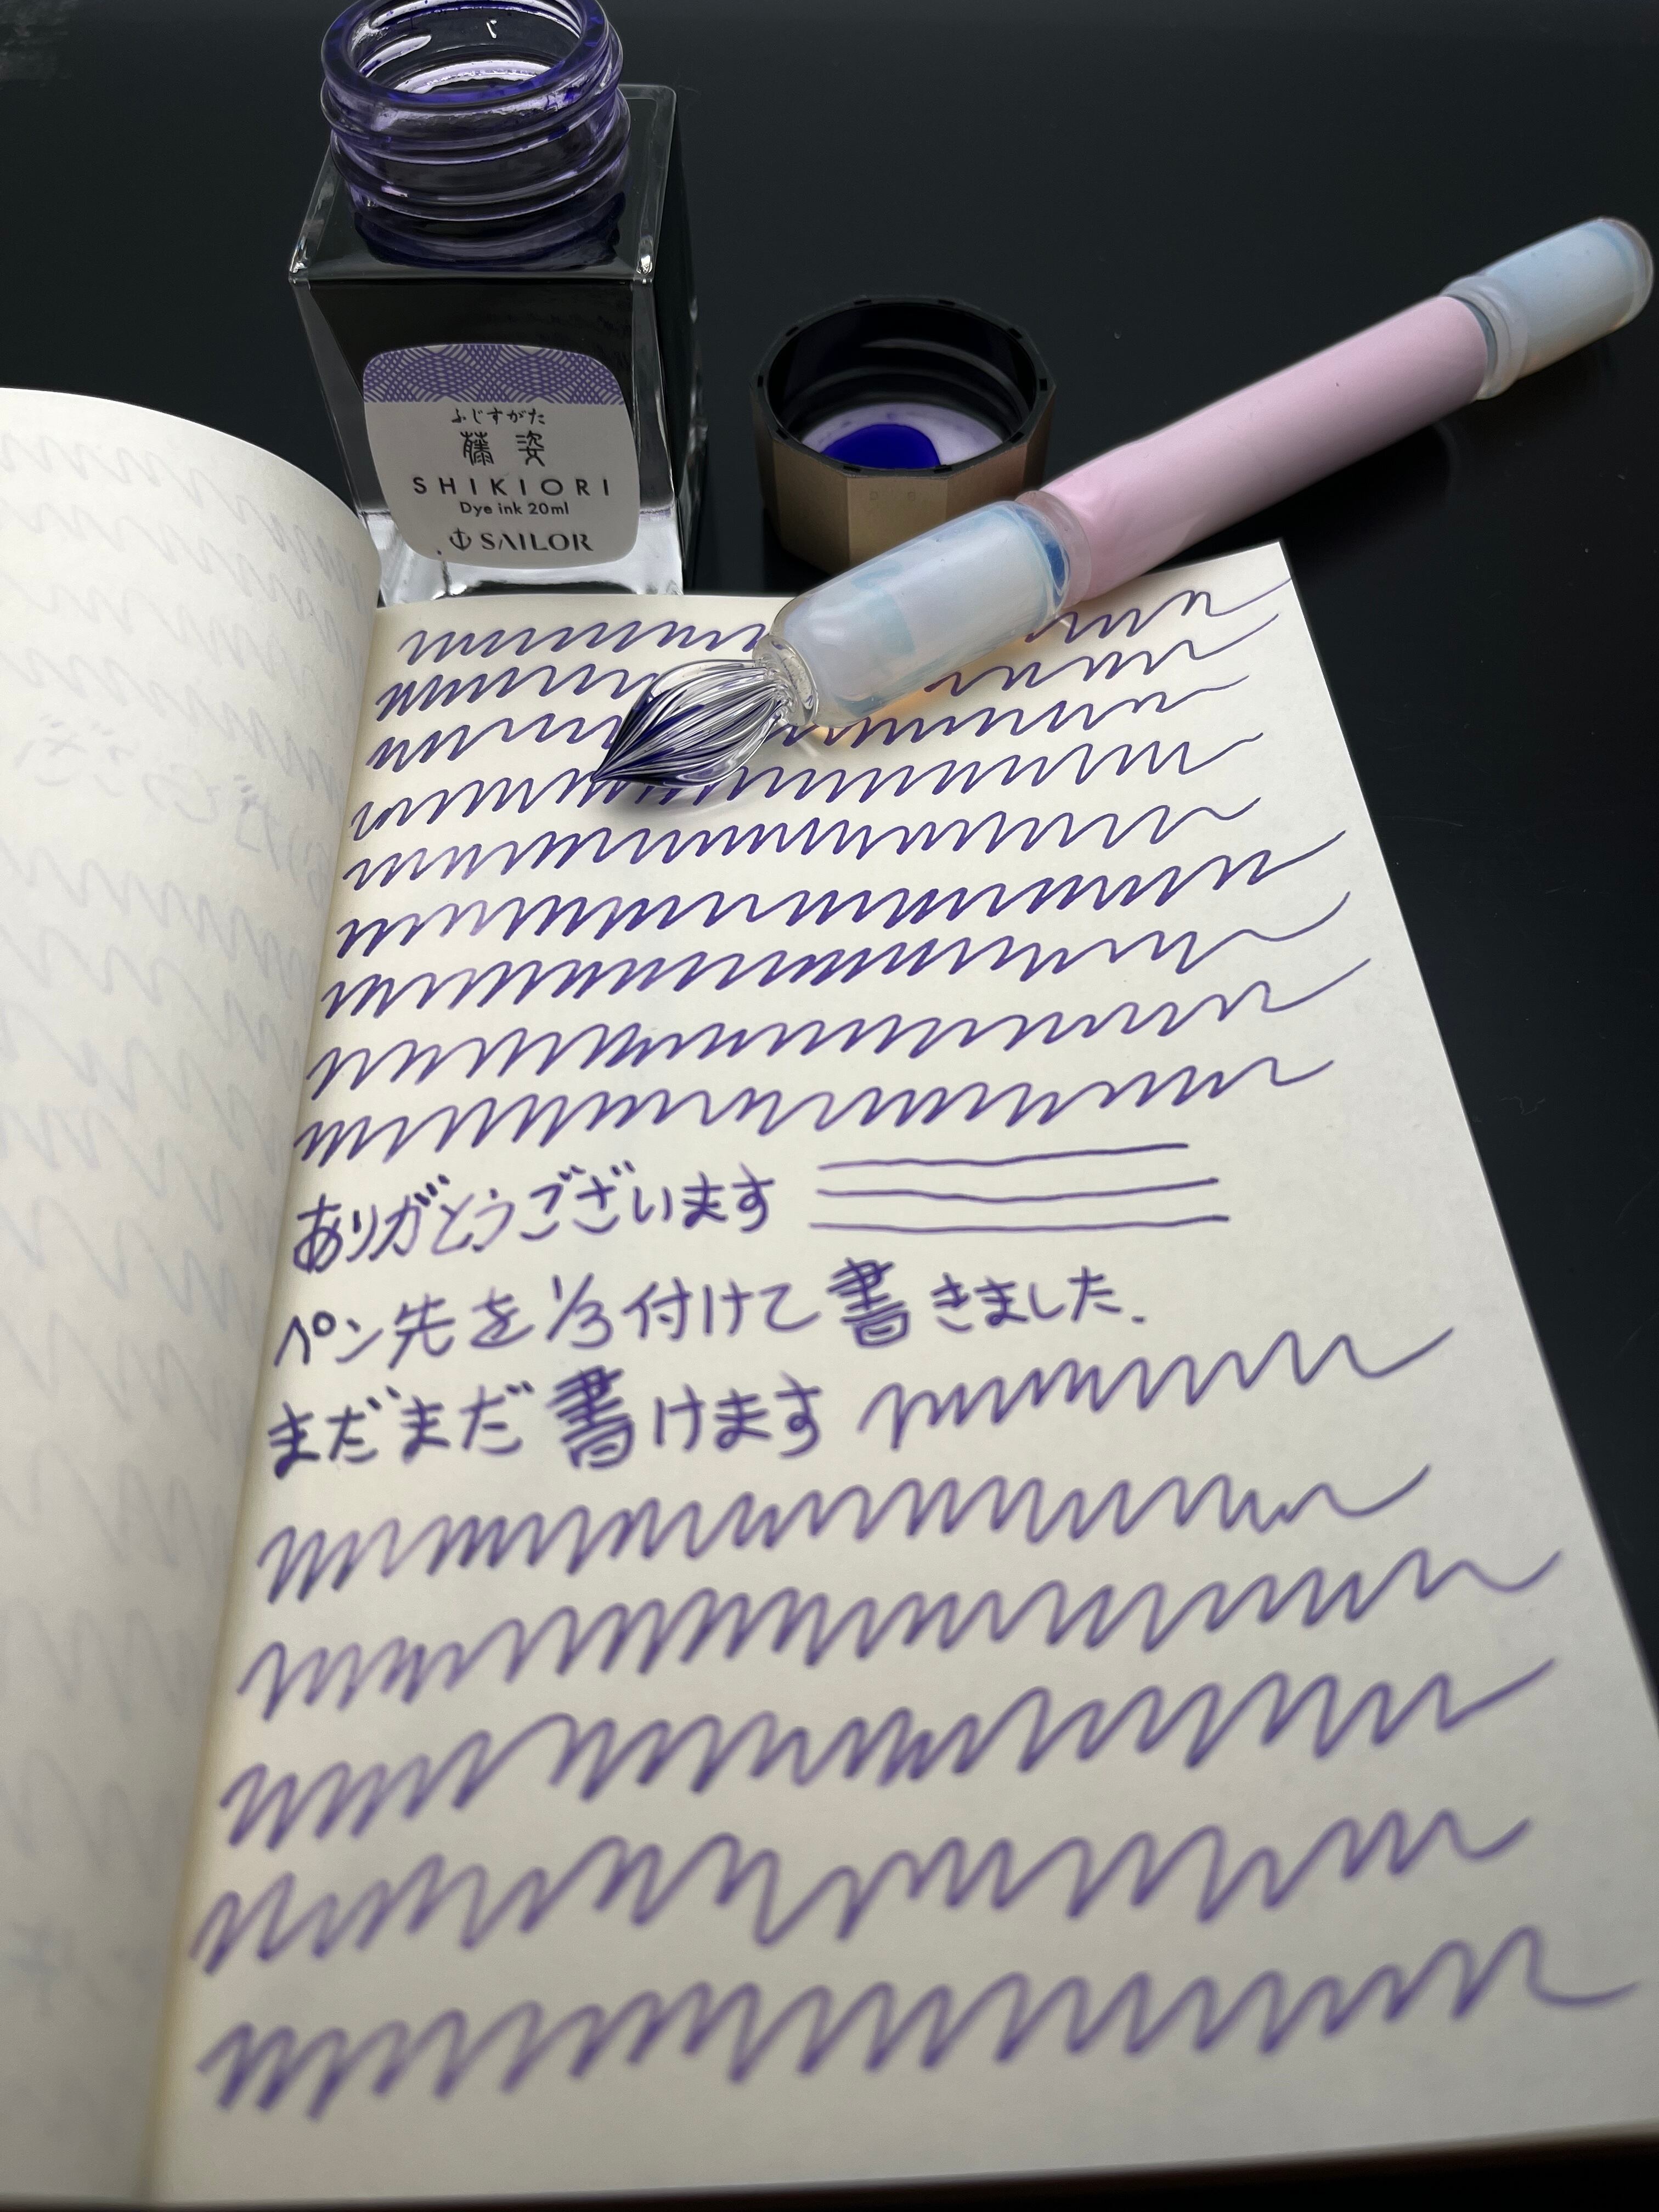 ふじすがた
藤姿
SHIKIORI
Dye ink 20ml
SAILOR
ありがとうございます
ペン先を1/3付けて書きました.
まだまだ書けます